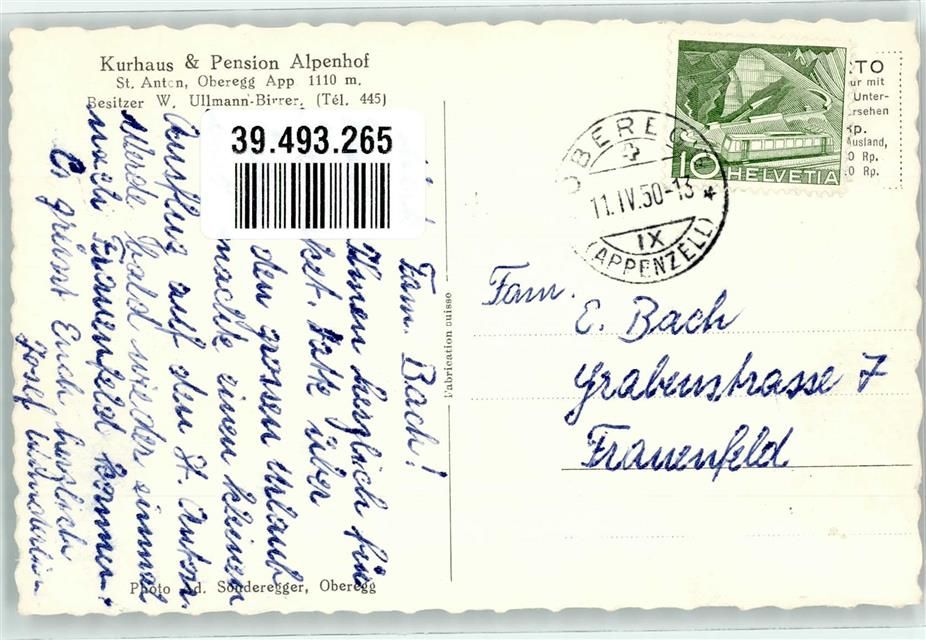 Kurhaus & Pension Alpenhof
St. Anton, Oberegg App 1110 m.
Besitzer W. Ullmann-Birrer. (Tél. 445)
39.493.265
Fam. Bach!
Ihnen herzlich für
ket. Habe über
den grossen Urlaub
machte einen kleinen
Ausflug auf den St. Anton.
Werde bald wieder einmal
nach Frauenfeld kommen.
Es grüsst Euch herzlich
Josef
Photo Ad. Sonderegger, Oberegg
Fabrication suisse
OBEREGG
11.IV.50-13
IX
(APPENZELL)
10 HELVETIA
RTO
ur mit
Unter-
ersehen
kp.
Ausland,
0 Rp.
0 Rp.
Fam.
E. Bach
Grabenstrasse 7
Frauenfeld